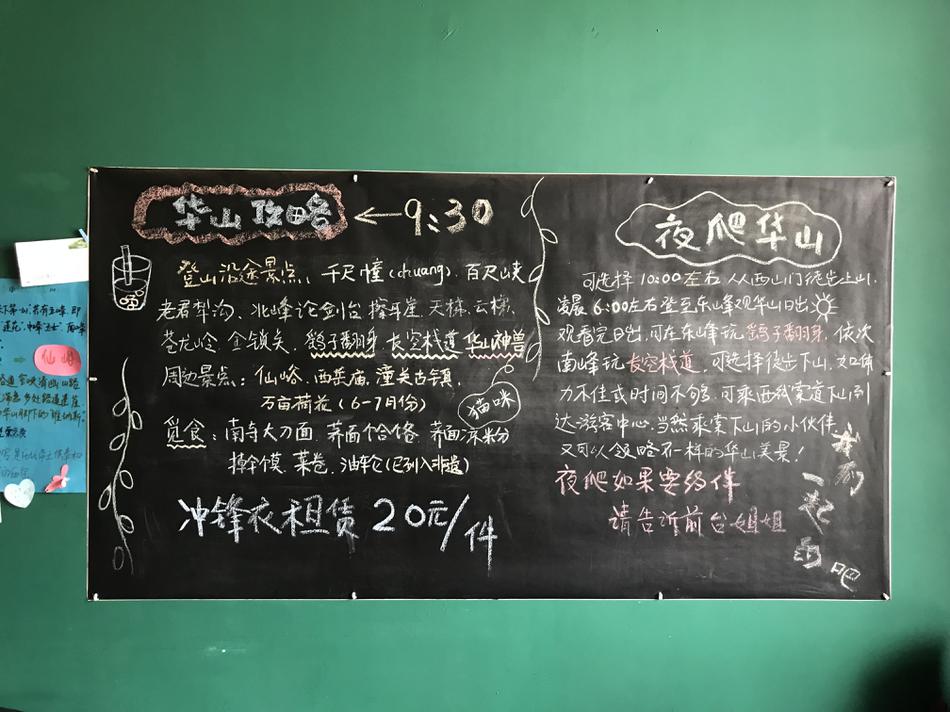 华山攻略 ←9:30
登山沿途景点：千尺幢(chuang)、百尺峡
老君犁沟、北峰论剑台 擦耳崖、天梯、云梯、
苍龙岭、金锁关、鹞子翻身、长空栈道 华山神兽
猫咪
周边景点：仙峪、西岳庙、潼关古镇、
万亩荷花（6-7月份）
觅食：南寺大刀面、荞面饸饹、荞面凉粉
菜卷、油
冲锋衣租赁 20元/件
夜爬华山
可选择10:00左右从西山门徒步上山，
凌晨6:00左右登至东峰观华山日出
观看完日出，可在东峰玩鹞子翻身，依次
南峰玩长空栈道，可选择徒步下山，如体
力不佳或时间不够，可乘西线索道下山到
达游客中心，当然乘索下山的小伙伴
又可以领略不一样的华山美景！
夜爬如果要结伴
请告诉前台姐姐
一起
吧
仙峪